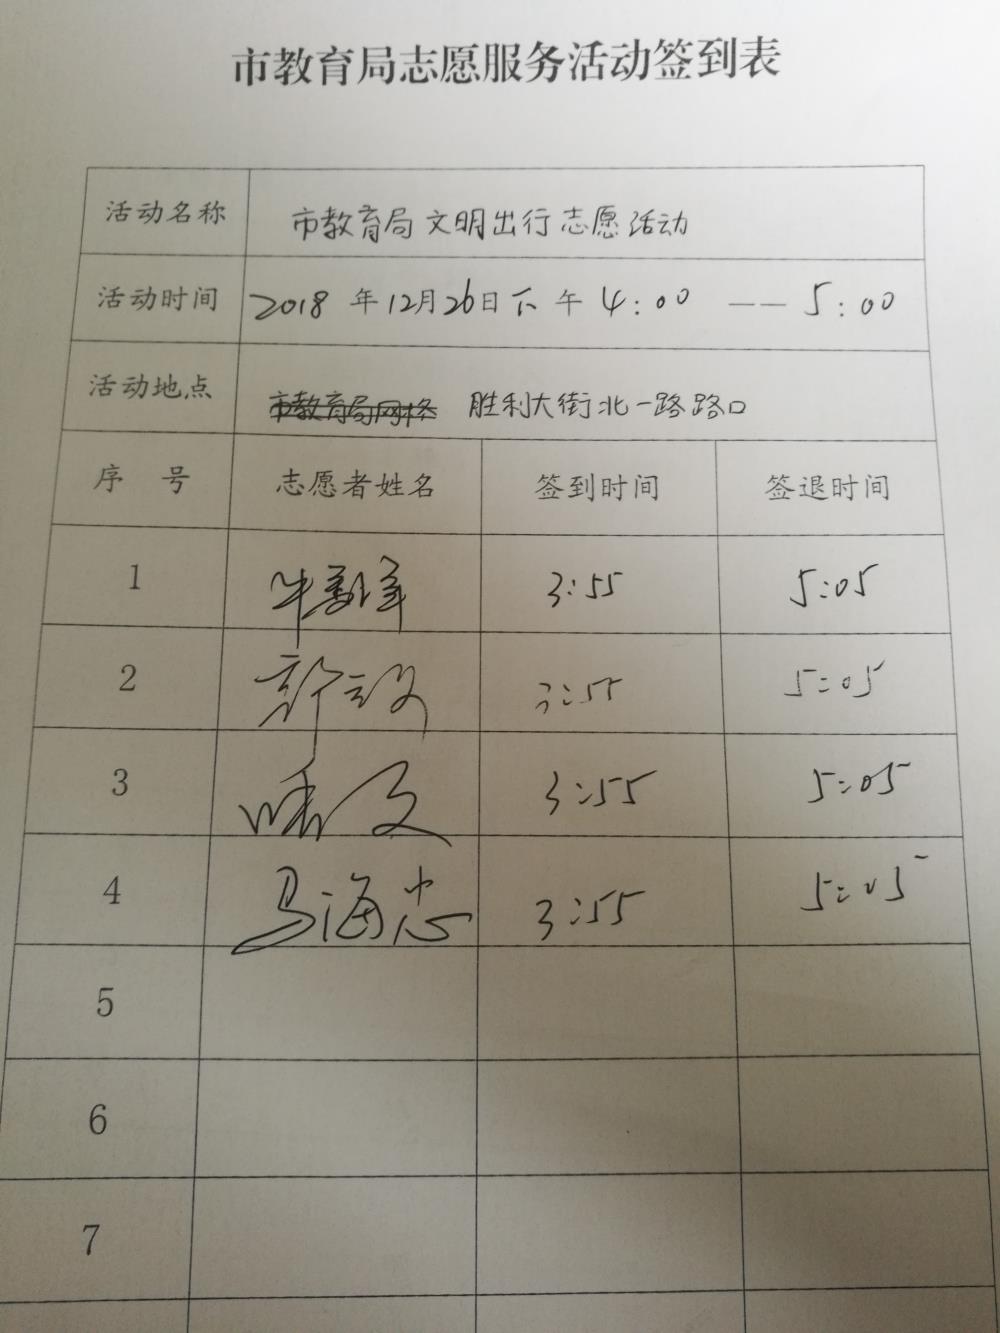 市教育局志愿服务活动签到表
活动名称 市教育局文明出行志愿活动
活动时间 2018年12月26日下午4:00——5:00
活动地点 市教育局网格 胜利大街北一路路口
序号 志愿者姓名 签到时间 签退时间
1 3:55 5:05
2 3:55 5:05
3 3:55 5:05
4 马海忠 3:55 5:05
5
6
7